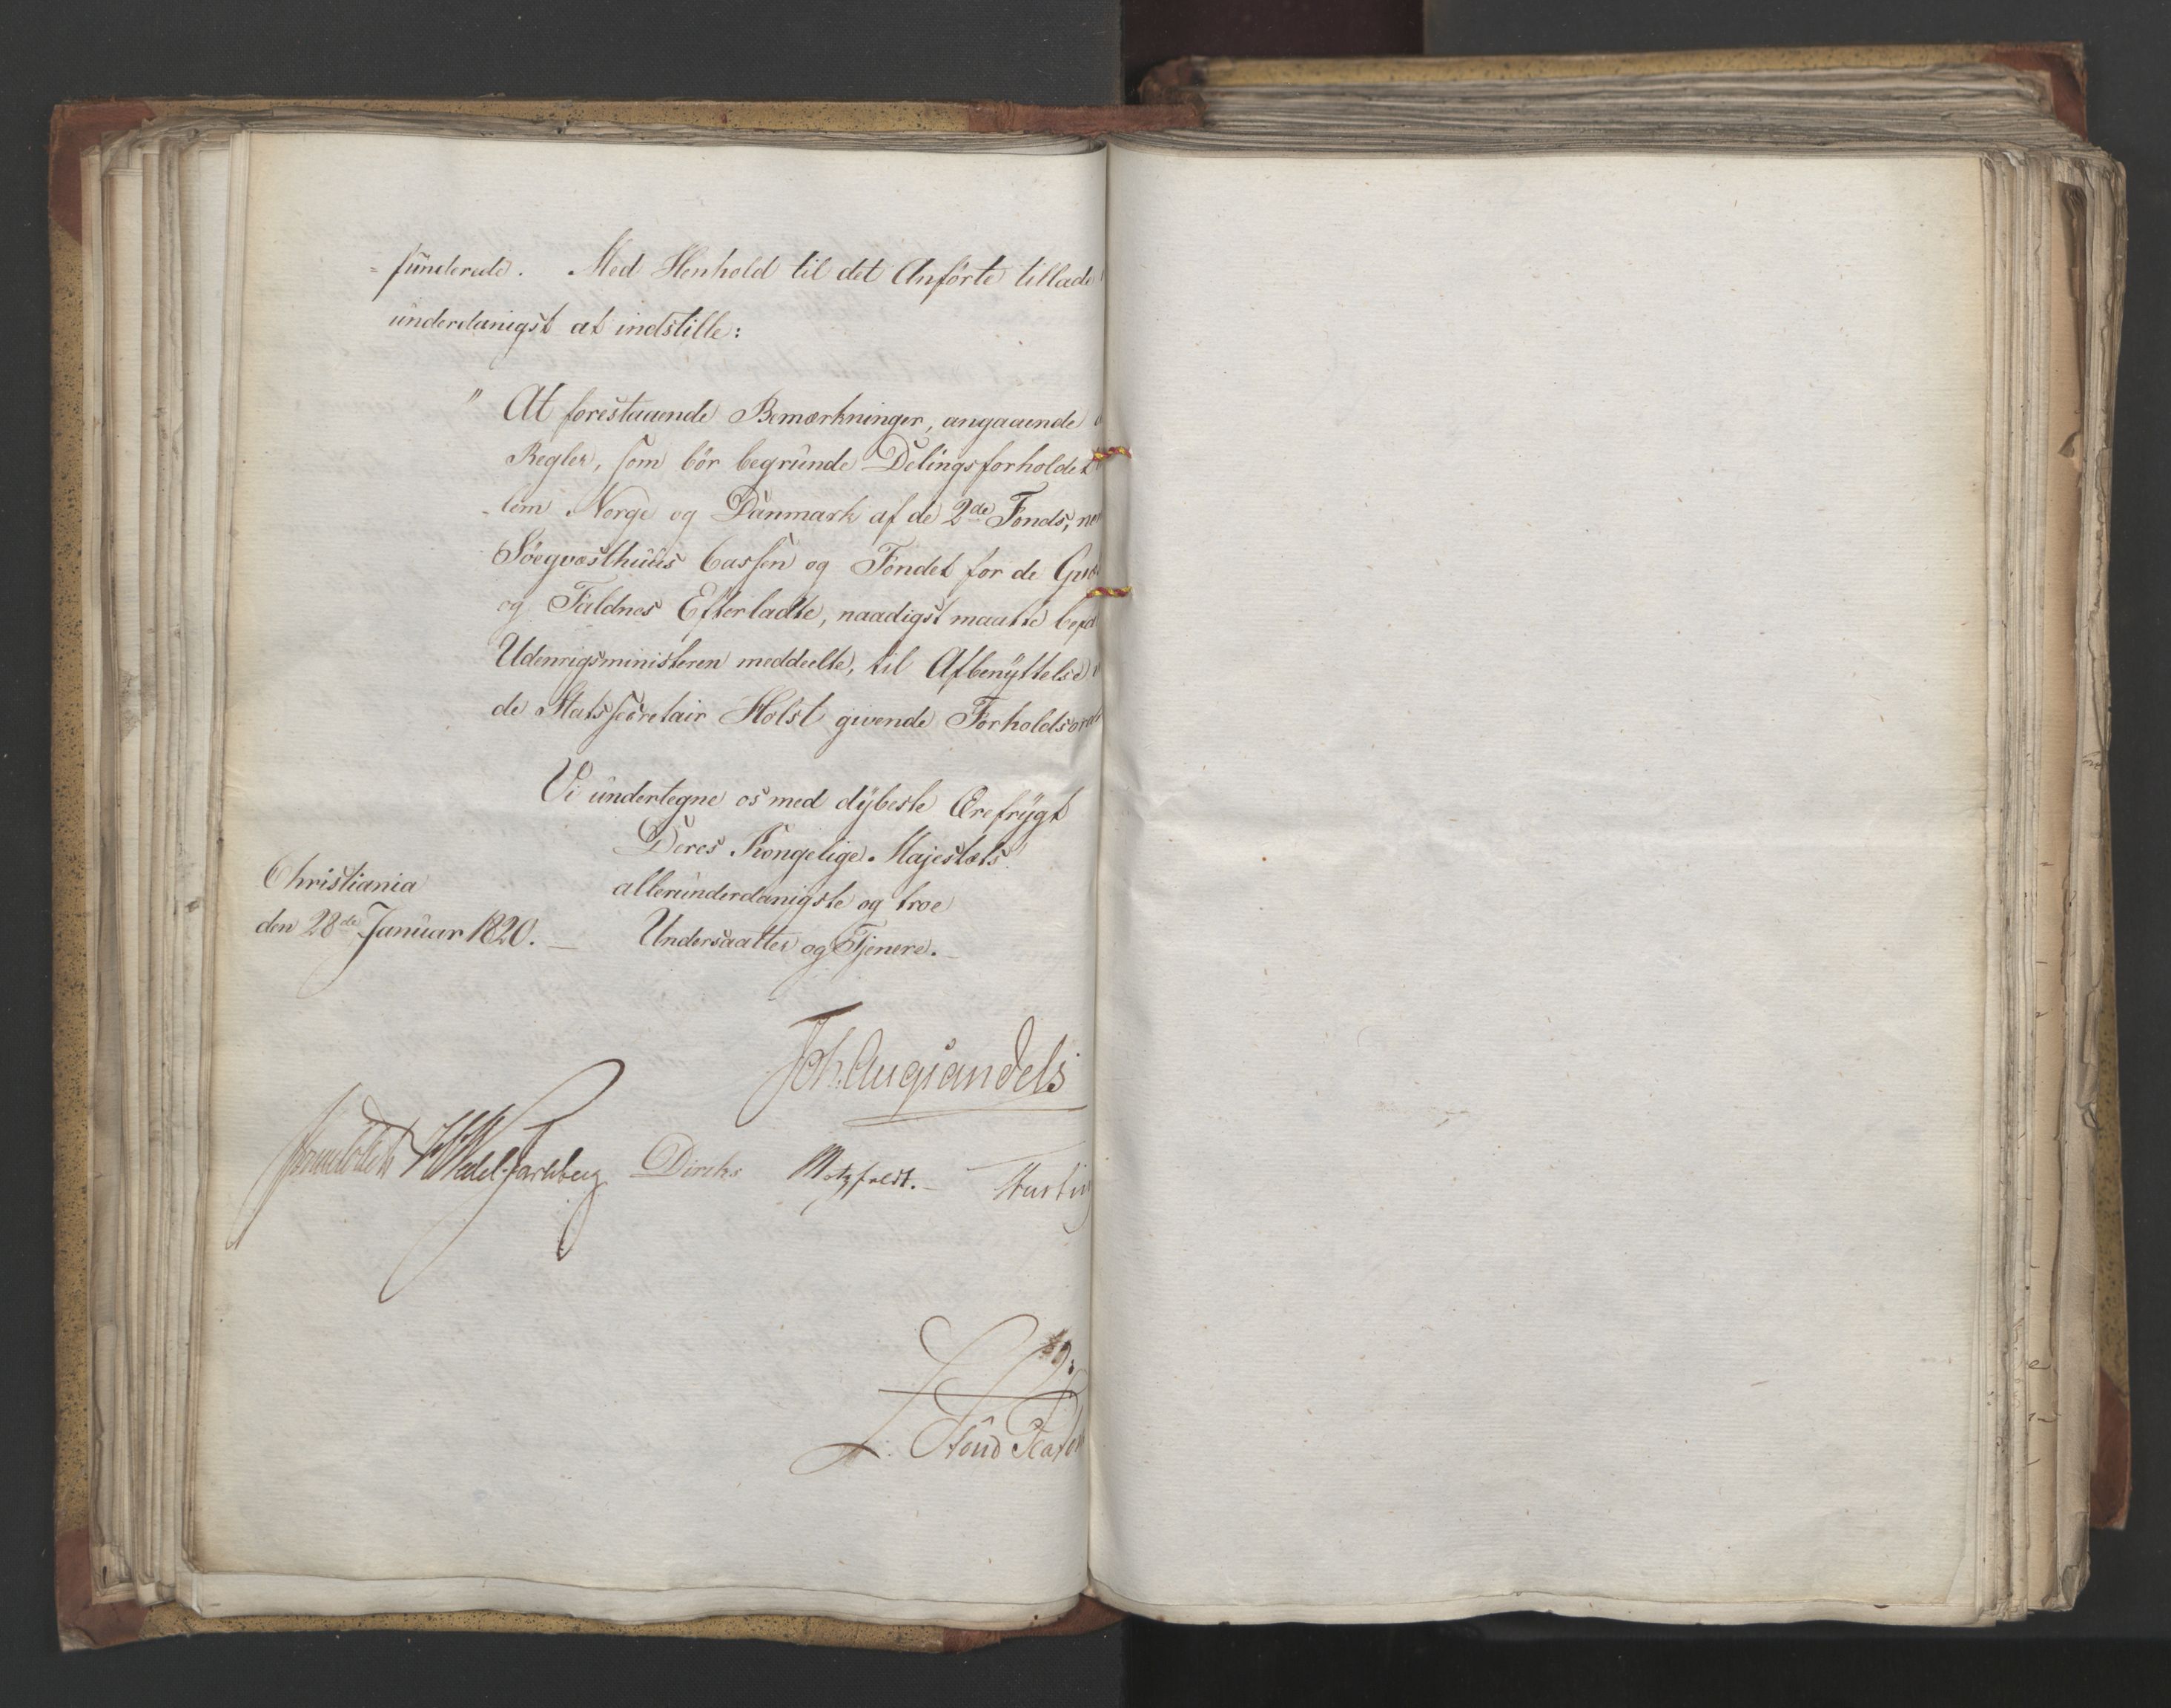 -funderede. Med Henhold til det Anførte tillade
underdanigst at indstille:
" At forestaaende Bemærkninger, angaaende
Regler, som bör begrunde Delingsforholdet
-lem Norge og Danmark af de 2de Fonds,
Söeqvæsthuus Cassen og Fondet for de
og Faldnes Efterladte, naadigst maatte
Udenrigsministeren meddeelte, til Afbenyttelse
de Statssecretair Holst givende
Vi undertegne os med dybeste Ærefrygt
Deres Kongelige Majestæts
allerunderdanigste og troe
Undersaatter og Tjenere.
Christiania
den 28de Januar 1820.
Joh. Aug. Sandels
Sommerhielm HWedel-Jarlsberg Diriks Motzfeldt.